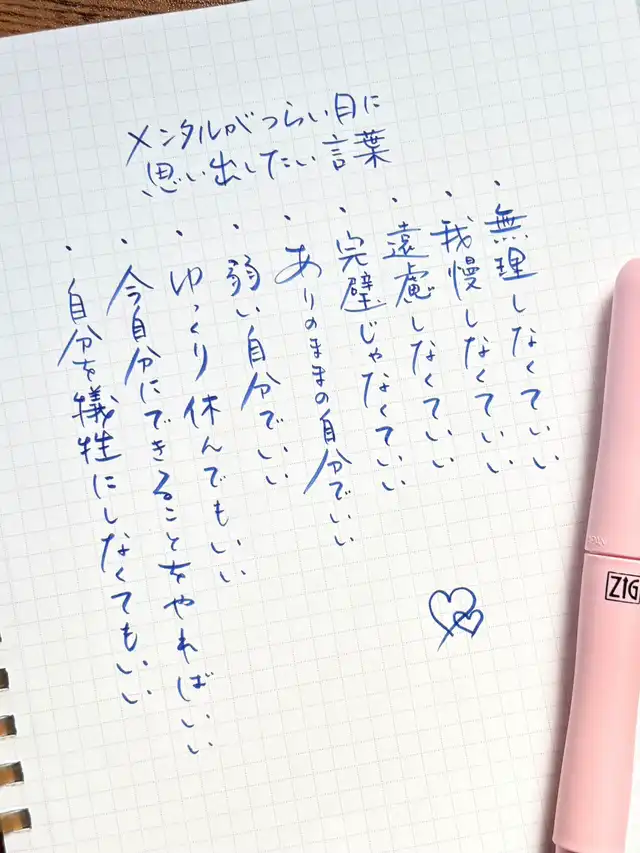 メンタルがつらい日に
思い出したい言葉
・無理しなくていい
・我慢しなくていい
・遠慮しなくていい
・完璧じゃなくていい
・ありのままの自分でいい
・弱い自分でいい
・ゆっくり休んでもいい
・今自分にできることをやればいい
・自分を犠牲にしなくてもいい
ZIG